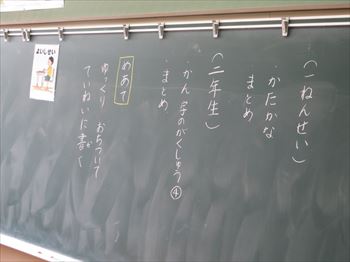 (一ねんせい)
・かたかな
まとめ
(二年生)
・かん字のがくしゅう④
・まとめ
めあて
ゆっくり おちついて
ていねいに書く
が
よいしせい